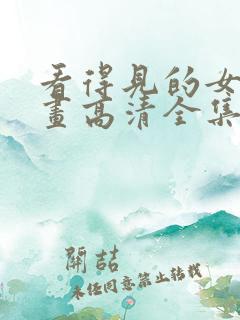 看得见的女
画高清全集
開喆
未经同意禁止转载